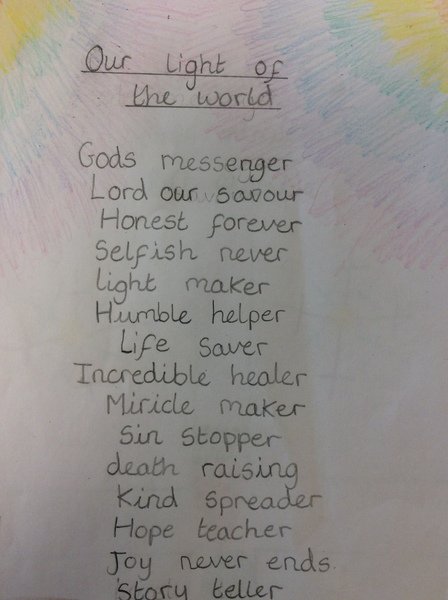 Our light of
the world
Gods messenger
Lord our savour
Honest forever
Selfish never
light maker
Humble helper
Life saver
Incredible healer
Miricle maker
Sin stopper
death raising
Kind spreader
Hope teacher
Joy never ends.
Story teller